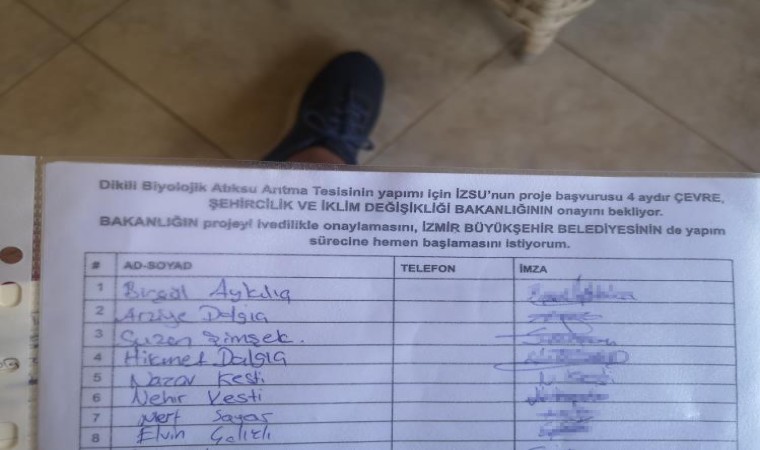 Dikili Biyolojik Atıksu Arıtma Tesisinin yapımı için İZSU'nun proje başvurusu 4 aydır ÇEVRE,
ŞEHİRCİLİK VE İKLİM DEĞİŞİKLİĞİ BAKANLIĞININ onayını bekliyor.
BAKANLIĞIN projeyi ivedilikle onaylamasını, İZMİR BÜYÜKŞEHİR BELEDİYESİNİN de yapım
sürecine hemen başlamasını istiyorum.
# AD-SOYAD TELEFON İMZA
1 Birgül
2 Arziye Dalgıa
3 Suzan Şimşek.
4 Hikmet Dalgıa
5 Nazar Kesti
6 Nehir Kesti
7 Mert Sayaş
8 Elvin